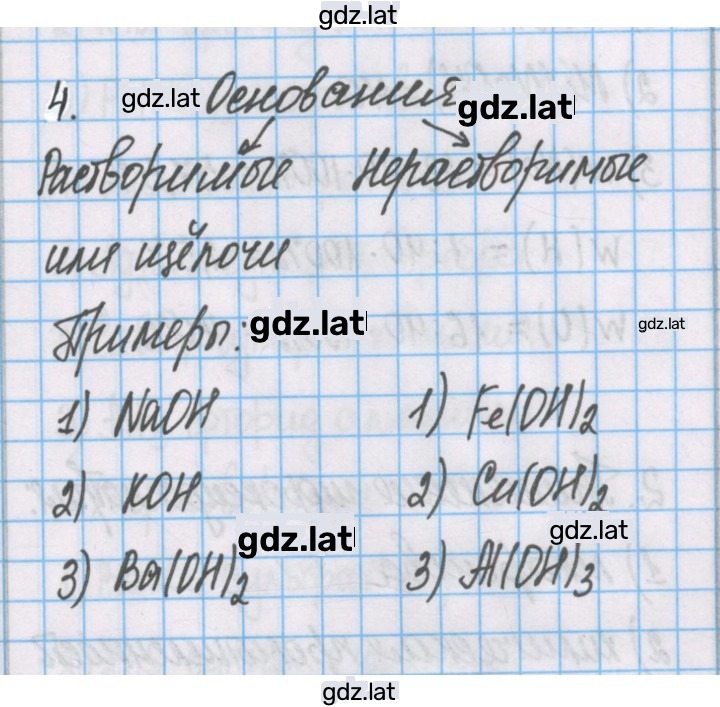 gdz.lat
4. gdz.lat Основания gdz.lat
Растворимые Нерастворимые
или щёлочи
Примеры: gdz.lat gdz.lat
1) NaOH 1) Fe(OH)2
2) KOH 2) Cu(OH)2
gdz.lat gdz.lat
3) Ba(OH)2 3) Al(OH)3
gdz.lat